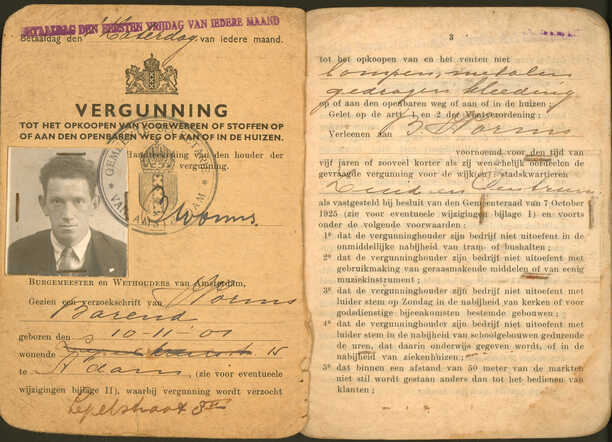 BETAALDAG DEN EERSTEN VRIJDAG VAN IEDERE MAAND
Betaaldag den Zaterdag van iedere maand.
VERGUNNING
TOT HET OPKOOPEN VAN VOORWERPEN OF STOFFEN OP
OF AAN DEN OPENBAREN WEG OF AAN OF IN DE HUIZEN.
Handteekening van den houder der
vergunning.
Worms
BURGEMEESTER EN WETHOUDERS van Amsterdam,
Gezien een verzoekschrift van Worms
Barend
geboren den 10-11-01
wonende
te A'dam, (zie voor eventueele
wijzigingen bijlage II), waarbij vergunning wordt verzocht
Lepelstraat
3
tot het opkoopen van en het venten niet
lompen, metalen
gedragen kleeding
op of aan den openbaren weg of aan of in de huizen;
Gelet op de artt. 1 en 2 der Ventverordening;
Verleenen aan B Worms
voornoemd voor den tijd van
vijf jaren of zooveel korter als zij wenschelijk oordeelen de
gevraagde vergunning voor de wijk(en) / stadskwartieren
Zuid en Centrum
als vastgesteld bij besluit van den Gemeenteraad van 7 October
1925 (zie voor eventueele wijziging bijlage 1) en voorts
onder de volgende voorwaarden:
1° dat de vergunninghouder zijn bedrijf niet uitoefent in de
onmiddellijke nabijheid van tram- of bushalten;
2° dat de vergunninghouder zijn bedrijf niet uitoefent met
gebruikmaking van geraasmakende middelen of van eenig
muziekinstrument;
3° dat de vergunninghouder zijn bedrijf niet uitoefent met
luider stem op Zondag in de nabijheid van kerken of voor
godsdienstige bijeenkomsten bestemde gebouwen;
4° dat de vergunninghouder zijn bedrijf niet uitoefent met
luider stem in de nabijheid van schoolgebouwen gedurende
de uren, dat daarin onderwijs gegeven wordt, of in de
nabijheid van ziekenhuizen;
5° dat binnen een afstand van 50 meter van de markten
niet stil wordt gestaan anders dan tot het bedienen van
klanten;